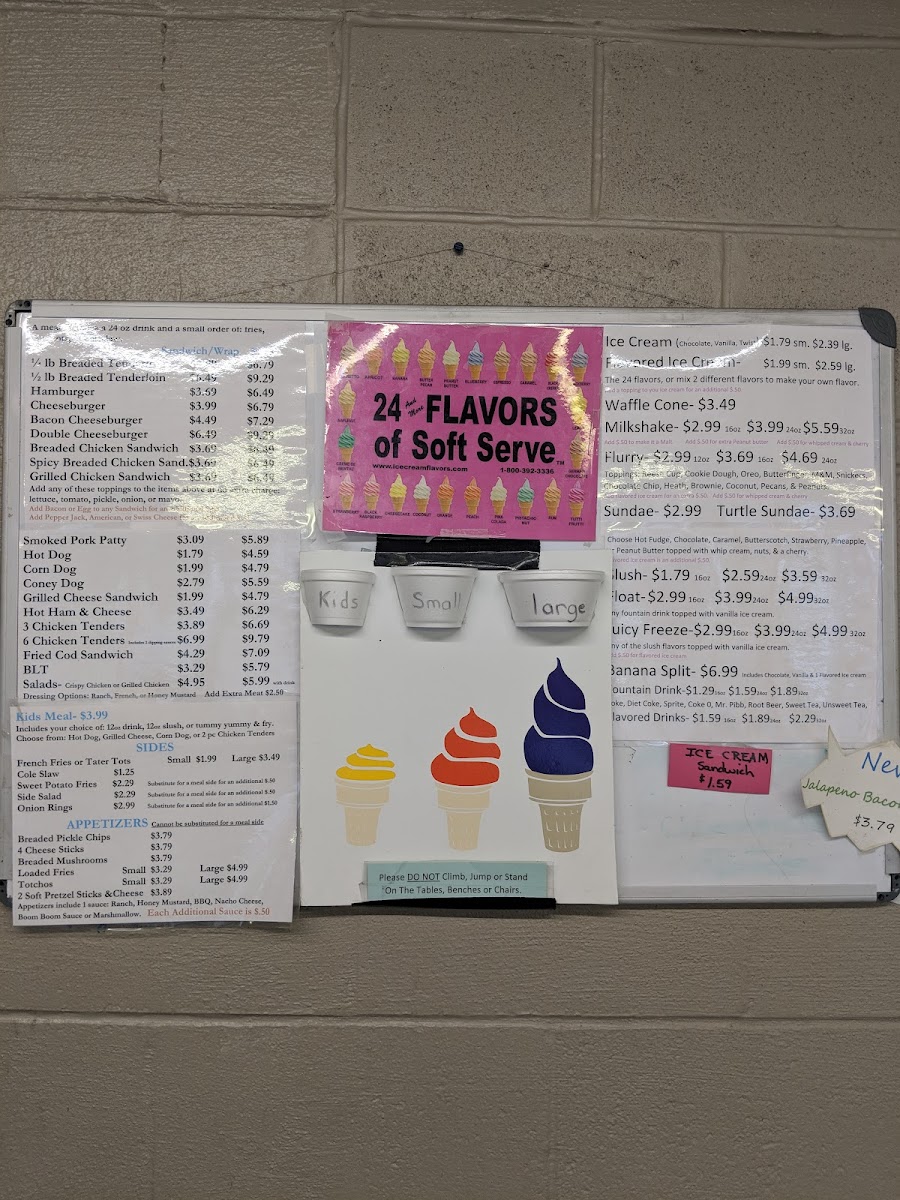 A
a 24 oz drink and a small order of: fries,
Sandwich/Wrap
¼ lb Breaded $6.79
½ lb Breaded Tenderloin $6.49 $9.29
Hamburger $3.69 $6.49
Cheeseburger $3.99 $6.79
Bacon Cheeseburger $4.49 $7.29
Double Cheeseburger $6.49 $9.29
Breaded Chicken Sandwich $3.69
Spicy Breaded Chicken Sand. $3.69 $6.49
Grilled Chicken Sandwich $3.69 $6.49
Add any of these toppings to the items above at no charge:
lettuce, tomato, pickle, onion, or mayo
Add Bacon or Egg to any Sandwich for an
Add Pepper Jack, American, or Swiss Cheese
Smoked Pork Patty $3.09 $5.89
Hot Dog $1.79 $4.59
Corn Dog $1.99 $4.79
Coney Dog $2.79 $5.59
Grilled Cheese Sandwich $1.99 $4.79
Hot Ham & Cheese $3.49 $6.29
3 Chicken Tenders $3.89 $6.69
6 Chicken Tenders Includes 2 dipping sauces $6.99 $9.79
Fried Cod Sandwich $4.29 $7.09
BLT $3.29 $5.79
Salads- Crispy Chicken or Grilled Chicken $4.95 $5.99 with drink
Dressing Options: Ranch, French, or Honey Mustard Add Extra Meat $2.50
Kids Meal- $3.99
Includes your choice of: 12oz drink, 12oz slush, or tummy yummy & fry.
Choose from: Hot Dog, Grilled Cheese, Corn Dog, or 2 pc Chicken Tenders
SIDES
French Fries or Tater Tots Small $1.99 Large $3.49
Cole Slaw $1.25
Sweet Potato Fries $2.29 Substitute for a meal side for an additional $.50
Side Salad $2.29 Substitute for a meal side for an additional $.50
Onion Rings $2.99 Substitute for a meal side for an additional $1.50
APPETIZERS Cannot be substituted for a meal side
Breaded Pickle Chips $3.79
4 Cheese Sticks $3.79
Breaded Mushrooms $3.79
Loaded Fries Small $3.29 Large $4.99
Totchos Small $3.29 Large $4.99
2 Soft Pretzel Sticks &Cheese $3.89
Appetizers include 1 sauce: Ranch, Honey Mustard, BBQ, Nacho Cheese,
Boom Boom Sauce or Marshmallow. Each Additional Sauce is $.50
APRICOT BANANA BUTTER PECAN PEANUT BUTTER BLUEBERRY ESPRESSO CARAMEL
24 And More FLAVORS
of Soft Serve™
www.icecreamflavors.com 1-800-392-3336
STRAWBERRY BLACK RASPBERRY CHEESECAKE COCONUT ORANGE PEACH PINA COLADA PISTACHIO NUT RUM TUTTI FRUTTI
Kids
Small
large
Please DO NOT Climb, Jump or Stand
On The Tables, Benches or Chairs.
Ice Cream (Chocolate, Vanilla, Twist) $1.79 sm. $2.39 lg.
Flavored Ice Cream- $1.99 sm. $2.59 lg.
The 24 flavors, or mix 2 different flavors to make your own flavor.
Add a topping to you ice cream for an additional $.50
Waffle Cone- $3.49
Milkshake- $2.99 16oz $3.99 24oz $5.59 32oz
Add $.50 to make it a Malt Add $.50 for extra Peanut butter Add $.50 for whipped cream & cherry
Flurry- $2.99 12oz $3.69 16oz $4.69 24oz
Toppings: Reese Cup, Cookie Dough, Oreo, Butterfinger, M&M, Snickers,
Chocolate Chip, Heath, Brownie, Coconut, Pecans, & Peanuts
Flavored ice cream for an extra $.50 Add $.50 for whipped cream & cherry
Sundae- $2.99 Turtle Sundae- $3.69
Choose Hot Fudge, Chocolate, Caramel, Butterscotch, Strawberry, Pineapple,
Peanut Butter topped with whip cream, nuts, & a cherry
flavored ice cream is an additional $.50
Slush- $1.79 16oz $2.59 24oz $3.59 32oz
Float- $2.99 16oz $3.99 24oz $4.99 32oz
any fountain drink topped with vanilla ice cream.
Juicy Freeze-$2.99 16oz $3.99 24oz $4.99 32oz
any of the slush flavors topped with vanilla ice cream.
$.50 for flavored ice cream
Banana Split- $6.99 Includes Chocolate, Vanilla & 1 Flavored Ice cream
Fountain Drink-$1.29 16oz $1.59 24oz $1.89 32oz
Coke, Diet Coke, Sprite, Coke 0, Mr. Pibb, Root Beer, Sweet Tea, Unsweet Tea,
Flavored Drinks- $1.59 16oz $1.89 24oz $2.29 32oz
ICE CREAM
Sandwich
$1.59
New
Jalapeno Bacon
$3.79